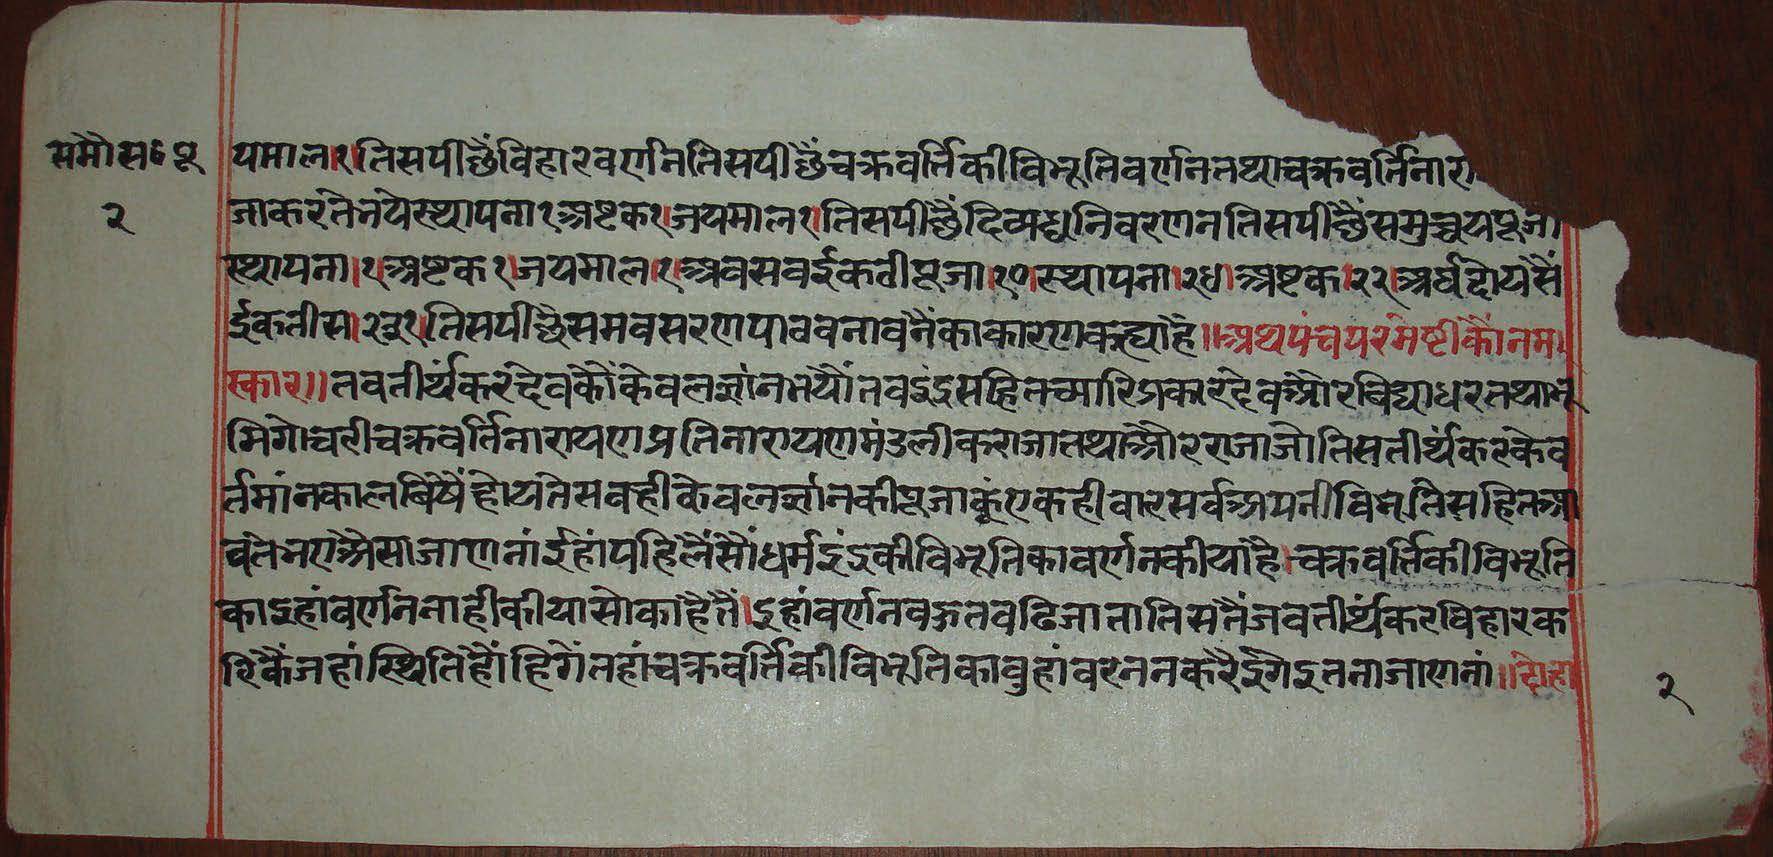 समौस६पू
२
यमाल।१।तिसपीछैंविहारवर्णनतिसपीछैंचक्रवर्त्तिकीविभूतिवर्णनतथाचक्रवर्त्तिनारा
जाकरतेभयेस्थापना१अष्टक१।जयमाल१।तिसपीछैंदिव्यध्वनिवरणनतिसपीछैंसमुच्चयपूजा
स्थापना।१।अष्टक१।जयमाल।१।अवसवईकठीपूजा।१०।स्थापना।२५।अष्टक।२२।अर्घदोयसैं
ईकतीस।२३१।तिसपीछैसमवसरणपाठवनावनैंकाकारणकह्याहै॥अथपंचपरमेष्टीकौंनम
स्कार॥तवतीर्थंकरदेवकौंकेवलज्ञांनभयौंतवइंद्रसहितच्यारिप्रकारदेवऔरविद्याधरतथाभू
मिगोचरीचक्रवर्त्तिनारायणप्रतिनारायणमंडलीकराजातथाऔरराजाजोतिसतीर्थंकरकेव
र्त्तमांनकालबिषैंहोयतेसवहीकेवलज्ञांनकीपूजाकूंएकहीवारसर्वअपनीविभूतिसहितआ
वतेभएअैसाजाणनांईहांपहिलैंसौंधर्मइंद्रकीविभूतिकावर्णनकीयाहै।चक्रवर्त्तिकीविभूति
काइहांवर्णननाहीकीयासोकाहेतैं।इहांवर्णनवहुतवढिजातातिसतैंजवतीर्थंकरविहारक
रिकैंजहांस्थितिहौंहिगेंतहांचक्रवर्त्तिकीविभूतिकावुहांवरननकरैईंगेइतनाजाणनां॥दोहा
२